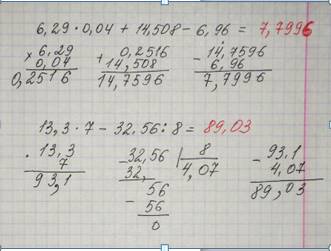 6,29 · 0,04 + 14,508 − 6,96 = 7,7996
× 6.29 + 0,2516 − 14,7596
0,04 14,508 6,96
0,2516 14,7596 7,7996
13,3 · 7 − 32,56 : 8 = 89,03
· 13,3 − 32,56 | 8 − 93,1
7 32, 4,07 4,07
93,1 56 89,03
− 56
0